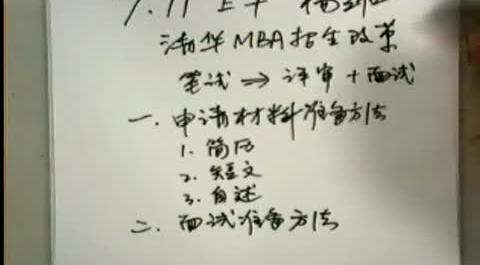 7.11 上午
清华MBA招生改革
笔试 ⇒ 评审 + 面试
一、申请材料准备方法
1. 简历
2. 短文
3. 自述
二、面试准备方法